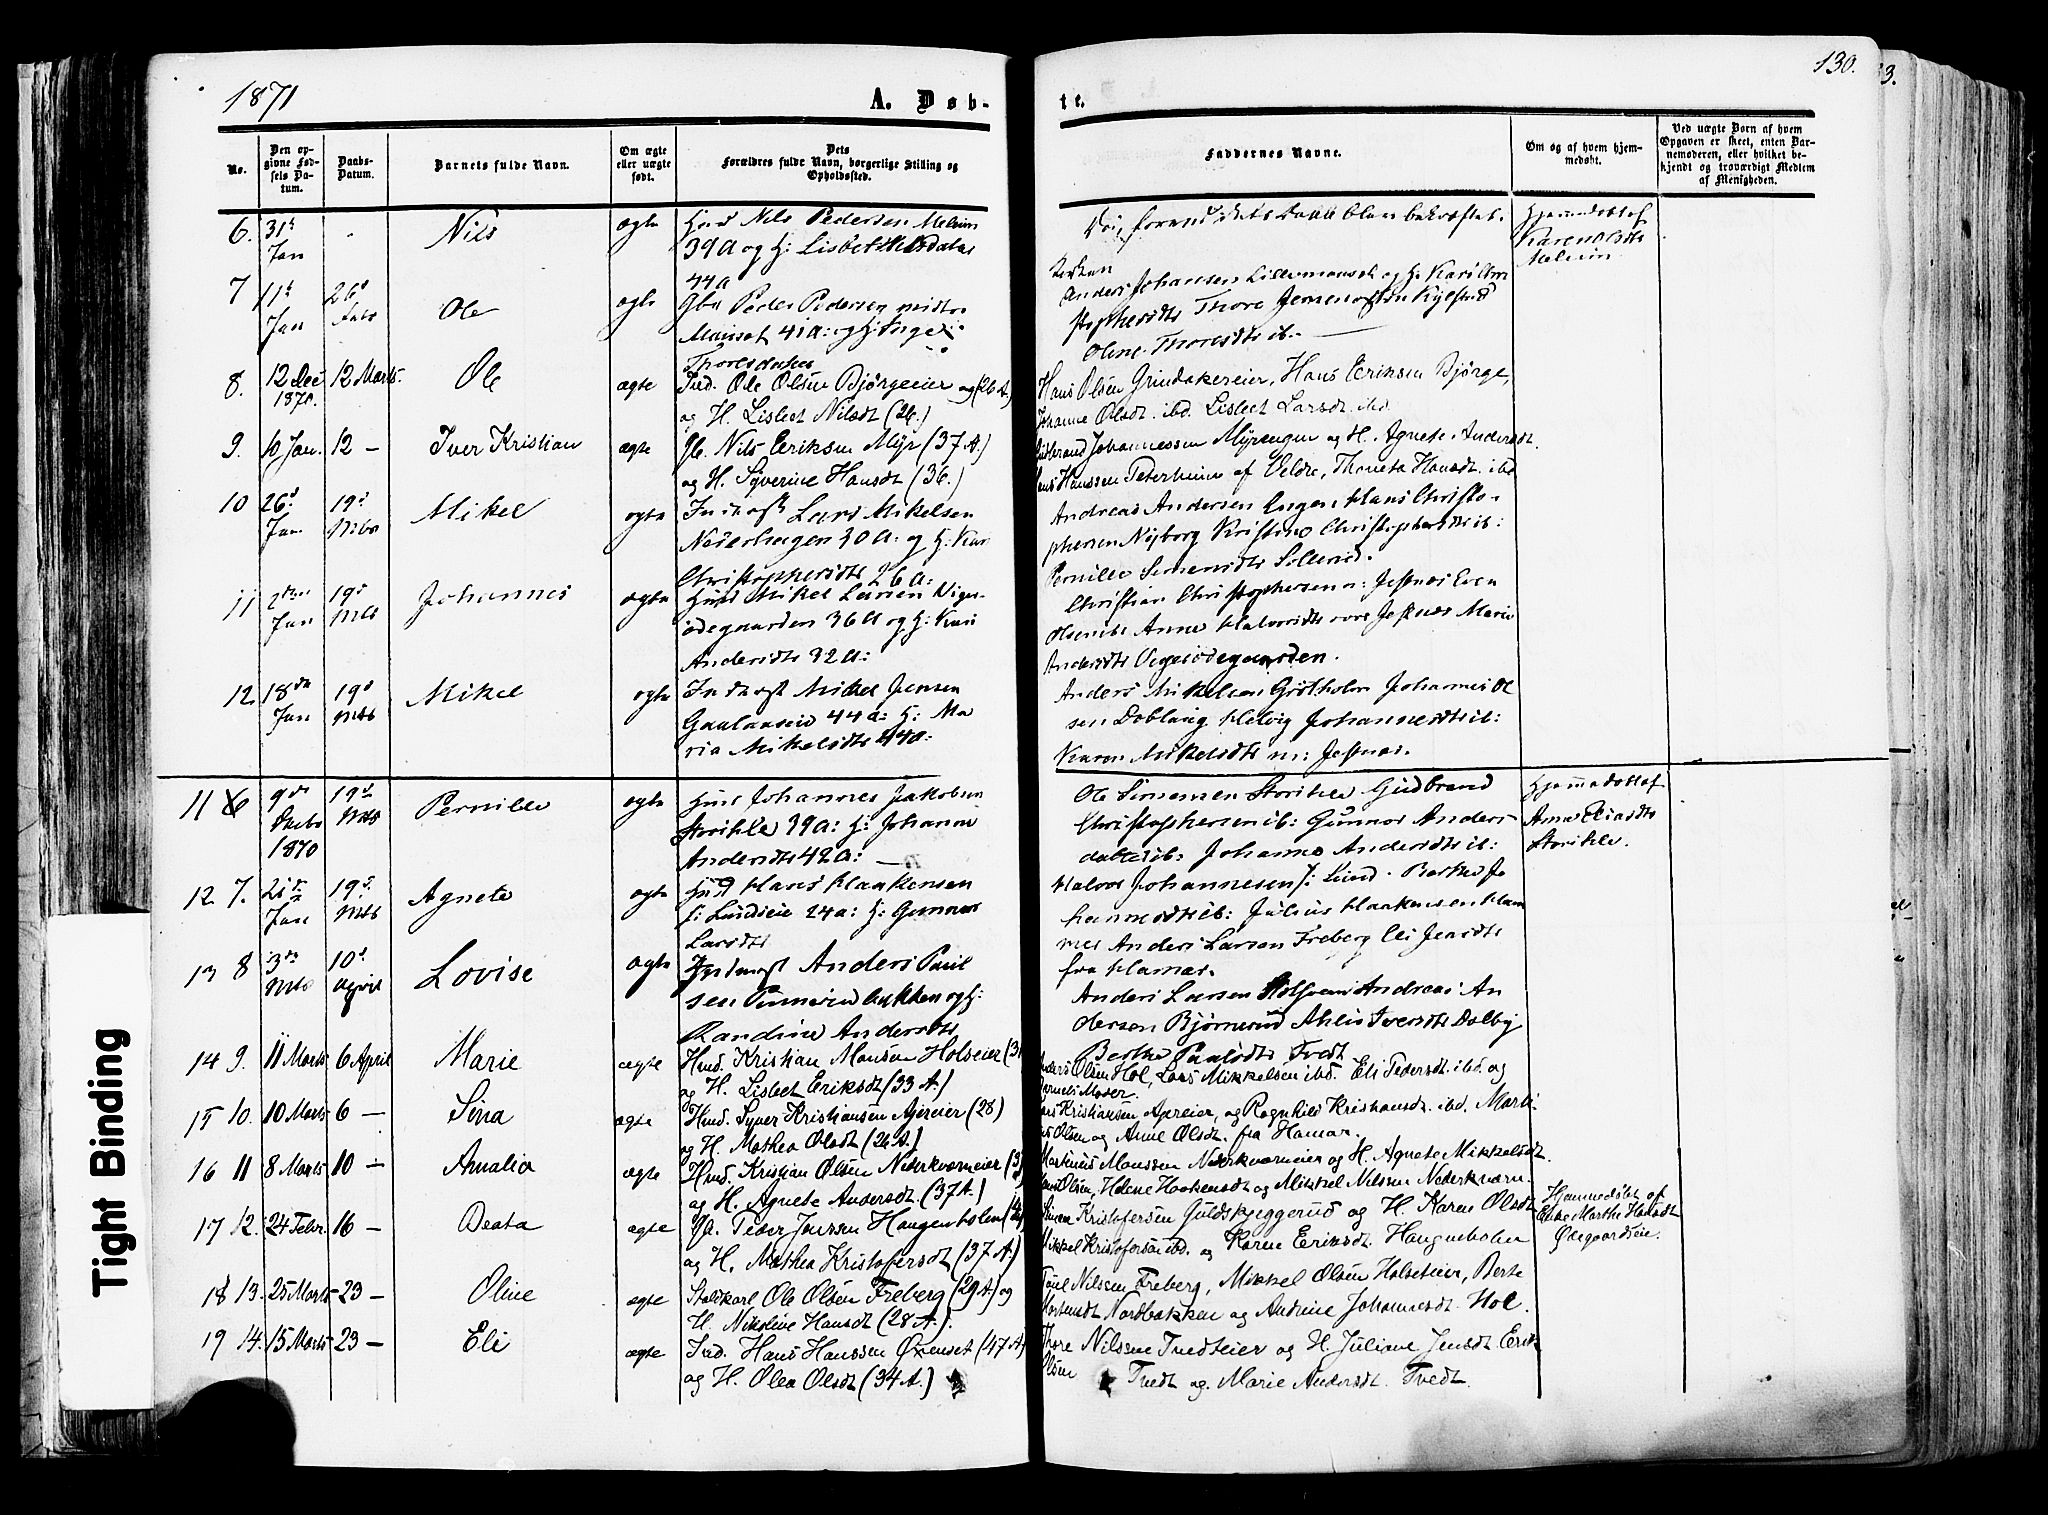 1871
A. Døb-
te.
130.
No.
Den opgivne Fødsels Datum.
Daabs-Datum.
Barnets fulde Navn.
Om ægte eller uægte født.
Dets Forældres fulde Navn, borgerlige Stilling og Opholdssted.
Faddernes Navne.
Om og af hvem hjemmedøbt.
Ved uægte Børn af hvem Opgaven er skeet, enten Barnemoderen, eller hvilket bekjendt og troværdigt Medlem af Menigheden.
6. 31te Jan
Nils
ægte
Husd Nils Pedersen Melum
39 A og H: Lisbet Nilsdatter
44 A
Hjemmedøbt af
Karen Olsdtr
7 11te Jan 26d Febr
Ole
ægte
Gbr Peder Pedersen
41 A: og H: Inge
Thoresdatter
Kirken
Anders Johansen og H: Kari Chri
stophersdtr Thore Jensen
Oline Thoresdtr ib.
8. 12 Dec 1870. 12 Marts.
Ole
ægte
Ind. Ole Olsen Bjørgeeier (26 A.)
og H. Lisbet Nilsdt (26.)
Hans Olsen Grindakereier, Hans Eriksen Bjørge,
Johanne Olsdt. ibd. Lisbet Larsdt. ibd.
9. 10 Jan. 12 -
Iver Kristian
ægte
Gb. Nils Eriksen Myr (37 A.)
og H. Syverine Hansdt (36.)
Gudbrand Johannessen Myrengen og H. Agnete Andersdt.
Hanssen Peterheim af Veldre, Thoneta Hansdt. ibd
10 26d Jan 19d Mts
Mikel
ægte
Inderst Lars Mikelsen
Nederhagen 30 A: og H: Kari
Christophersdtr 26 A:
Andreas Andersen Engen Hans Christo-
phersen Nyborg Kristine Christophersdtr ib:
Pernille Simensdtr Sollerud.
11 Jan 19d Mts
Johannes
ægte
Husd Mikel Larsen Viger-
ødegaarden 36 A og H: Kari
Andersdtr 32 A:
Christian Christophersen n: Jesnes Even
Olsen ib Anne Halvorsdtr Jesnes Marie
Andersdtr Vigerødegaarden.
12. 18de Jan 19d Mts
Mikel
ægte
Inderst Mikel Jensen
Gaalaaseie 44 A: H: Ma
ria Mikelsdtr 44 A:
Anders Mikelsen Grøtholm Johannes Ol
sen Dobloug Helvig Johannesdtr ib:
Karen Mikelsdtr n: Jesnes.
11 6 9de Decbr 1870 19d Mts
Pernille
ægte
Husd Johannes Jakobsen
Storihle 39 A: H: Johanne
Andersdtr 42 A: —
Ole Simensen Storihle Gudbrand
Christophersen ib: Gunnor Anders-
datter ib: Johanne Andersdtr ib:
Hjemmedøbt af
Anne Eliasdtr
Storihle.
12 7. 21de Jan 19d Mts
Agnete
ægte
Husd Hans Haakensen
s: Lundseie 24 A: H: Gunnor
Larsdtr
Halvor Johannesen s: Lund. Berthe Jo
hannesdtr ib: Julius Haakensen Ham
mer Anders Larsen Freberg Eli Jensdtr
fra Hamar.
13 8 3de Mts 10d April
Lovise
ægte
Inderst Anders Paul
sen bakken og H:
Randine Andersdtr
Anders Larsen Andreas An
dersen Bjørnerud Iversdtr Dolby
Berthe Paulsdtr Tvedt
14 9. 11 Marts 6 April
Marie
ægte
Hmd. Kristian Monsen Holseier (31
og H. Lisbet Eriksdt (33 A.)
Anders Olsen Hol, Lars Mikkelsen ibd. Eli Pedersdt. ibd. og
Barnets Moder.
15 10. 10 Marts 6 —
Sina
ægte
Hmd. Syver Kristiansen Ajereier (28)
og H. Mathea Olsdt (26 A.)
Kristiansen Ajereier, og Ragnhild Kristiansdt. ibd. Marti-
us Olsen og Anne Olsdt. fra Hamar.
16 11 8 Marts 10 —
Amalia
ægte
Hmd. Kristian Olsen Nederkværneier
og H. Agnete Andersdt (37 A.)
Martinus Monssen Nederkværneier og H. Agnete Mikkelsdt.
Olsen, Helene Haakensdt og Mikkel Nilssen Nederkværn.
17 12. 24 Febr. 16 —
Beata
ægte
Gb. Peder Jenssen Haugenholen
og H. Mathea Kristofersdt (37 A.)
Simen Kristofersen Guldskjeggerud og H. Karen Olsdt
Mikkel Kristofersen ibd. og Karen Eriksdt. Haugneholen
Hjemmedøbt af
Enke Marthe Hansdt
Ødegaardseie.
18 13. 25 Marts 23 —
Oline
ægte
Staldkarl Ole Olsen Freberg (29 A.) og
H. Nikoline Hansdt (28 A.)
Poul Nilssen Freberg, Mikkel Olsen Holseteier, Berte
Mortensdt Nordbakken og Andrine Johannesdt. Hol.
19 14. 15 Marts 23 —
Eli
ægte
Ind. Hans Hanssen Ørenset (47 A)
og H. Olea Olsdt (34 A.)
Thore Nilssen Tvedteier og H. Juliane Jensdt. Erik
Olsen Tvedt og Marie Andersdt. Tvedt.
Tight Binding